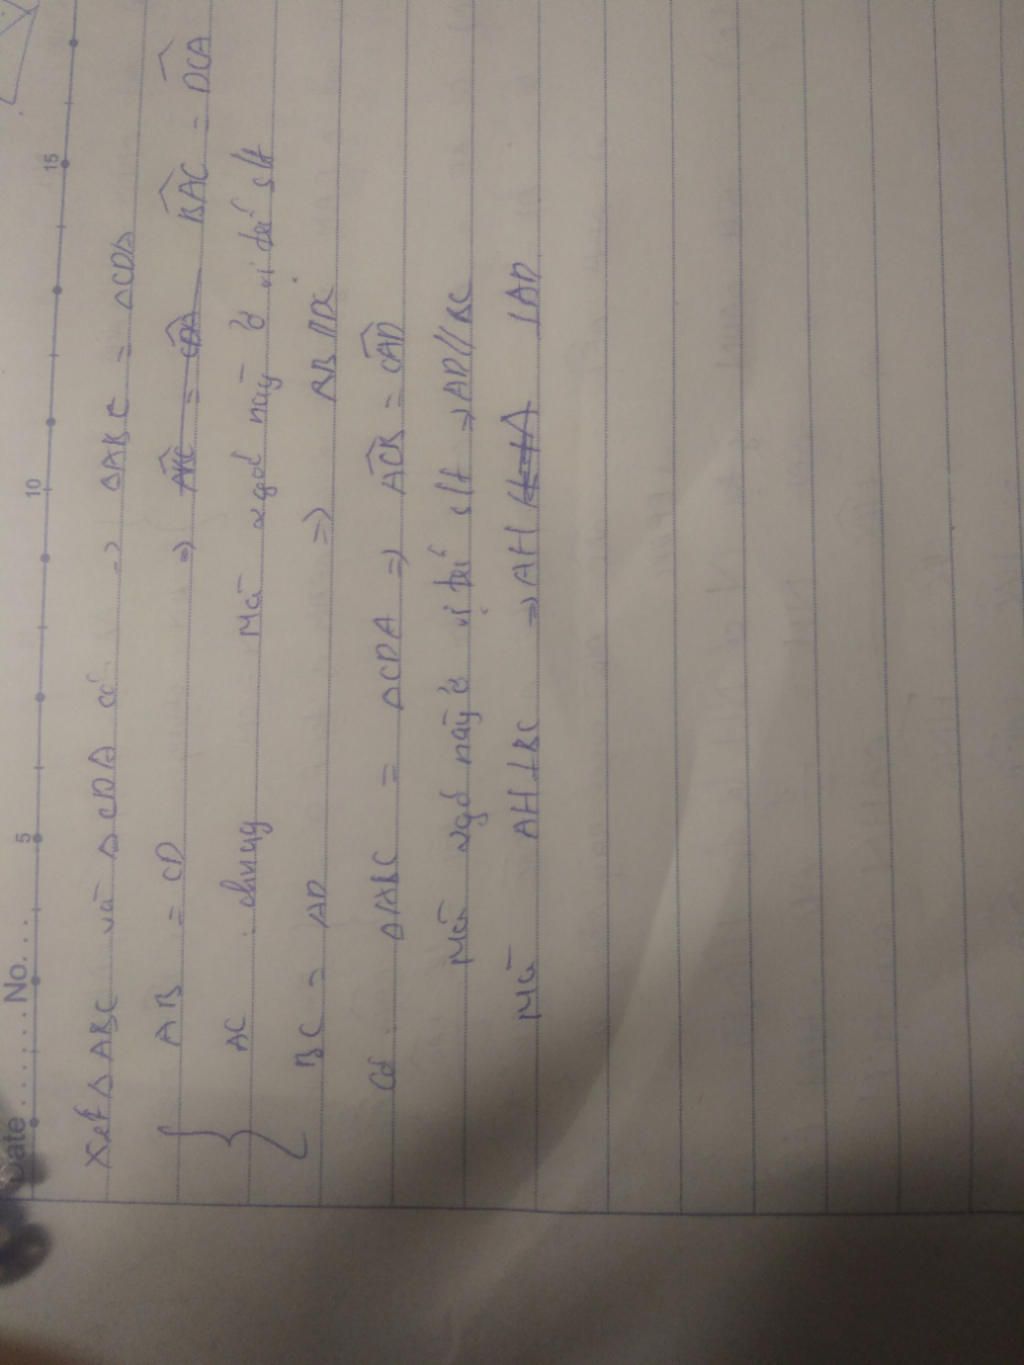 Date . . . . . . No. . . .
5 10 15
Xét Δ ABC và Δ CDA có => ΔABC = ΔCDA
AB = CD => ABC = CDA BAC = DCA
AC chung Mà 2 góc này ở vị trí slt
BC = AD => AB // DC
Có ΔABC = ΔCDA => ACB = CAD
Mà 2 góc này ở vị trí slt => AD // BC
Mà AH ⊥ BC => AH ⊥ AD